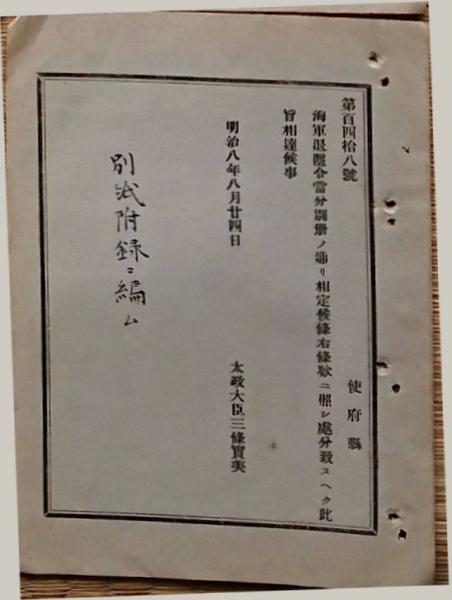 第百四拾八號
使府縣
海軍退隱令當分別册ノ通リ相定候條右條款ニ照シ處分致スヘク此
旨相達候事
明治八年八月廿四日
太政大臣三條實美
別冊附録ニ編ム